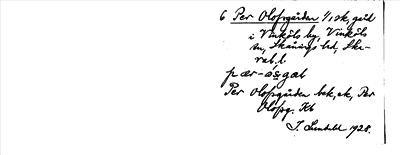 6 Per Olofsgården 1/1 sk, gård
i Vinköls by, Vinköls
sn, Skånings hd, Ska-
rab. l.
pær-ógal
Per Olofsgården bek, ek, Per
Olofsg. Kb
J. Lundahl 1928.